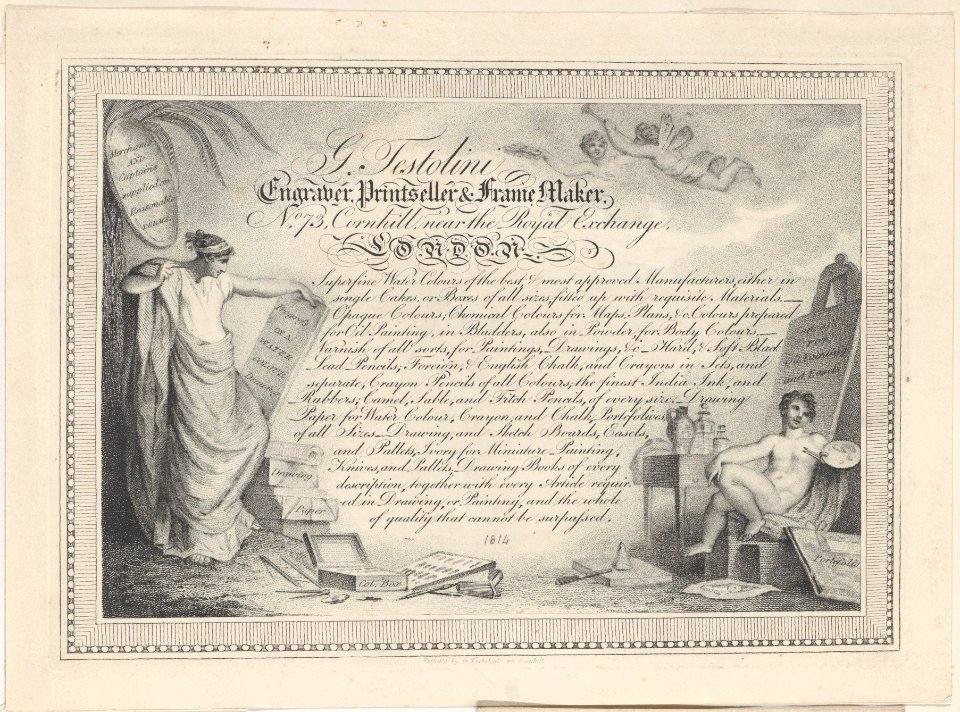 G. Testolini
Engraver, Printseller & Frame Maker,
No. 73, Cornhill, near the Royal Exchange,
LONDON.
Superfine Water Colours of the best, & most approved Manufacturers, either in
single Cakes, or Boxes of all sizes fitted up with requisite Materials.—
Opaque Colours; Chemical Colours for Maps, Plans, &c. Colours prepared
for Oil Painting, in Bladders, also in Powder, for Body Colours,—
Varnish of all sorts, for Paintings, Drawings, &c— Hard, & Soft Black
Lead Pencils; Foreign, & English Chalk, and Crayons in Sets, and
separate; Crayon Pencils of all Colours; the finest India Ink, and
Rubbers; Camel, Sable, and Fitch Pencils, of every size.— Drawing
Paper for Water Colour, Crayon, and Chalk, Portfolives
of all Sizes— Drawing, and Sketch Boards, Easels,
and Pallets, Ivory for Miniature Painting,
Knives, and Pallets, Drawing Books of every
description, together with every Article requir-
ed in Drawing, or Painting, and the whole
of quality that cannot be surpassed.
1814
Merchants
AND
Captains
supplied on
Reasonable
terms
Prepared
OIL &
WATER
COLOURS
Drawing
Paper
Col. Box
FOR
and Easels
Portfolio
Publish'd by G. Testolini 73 Cornhill